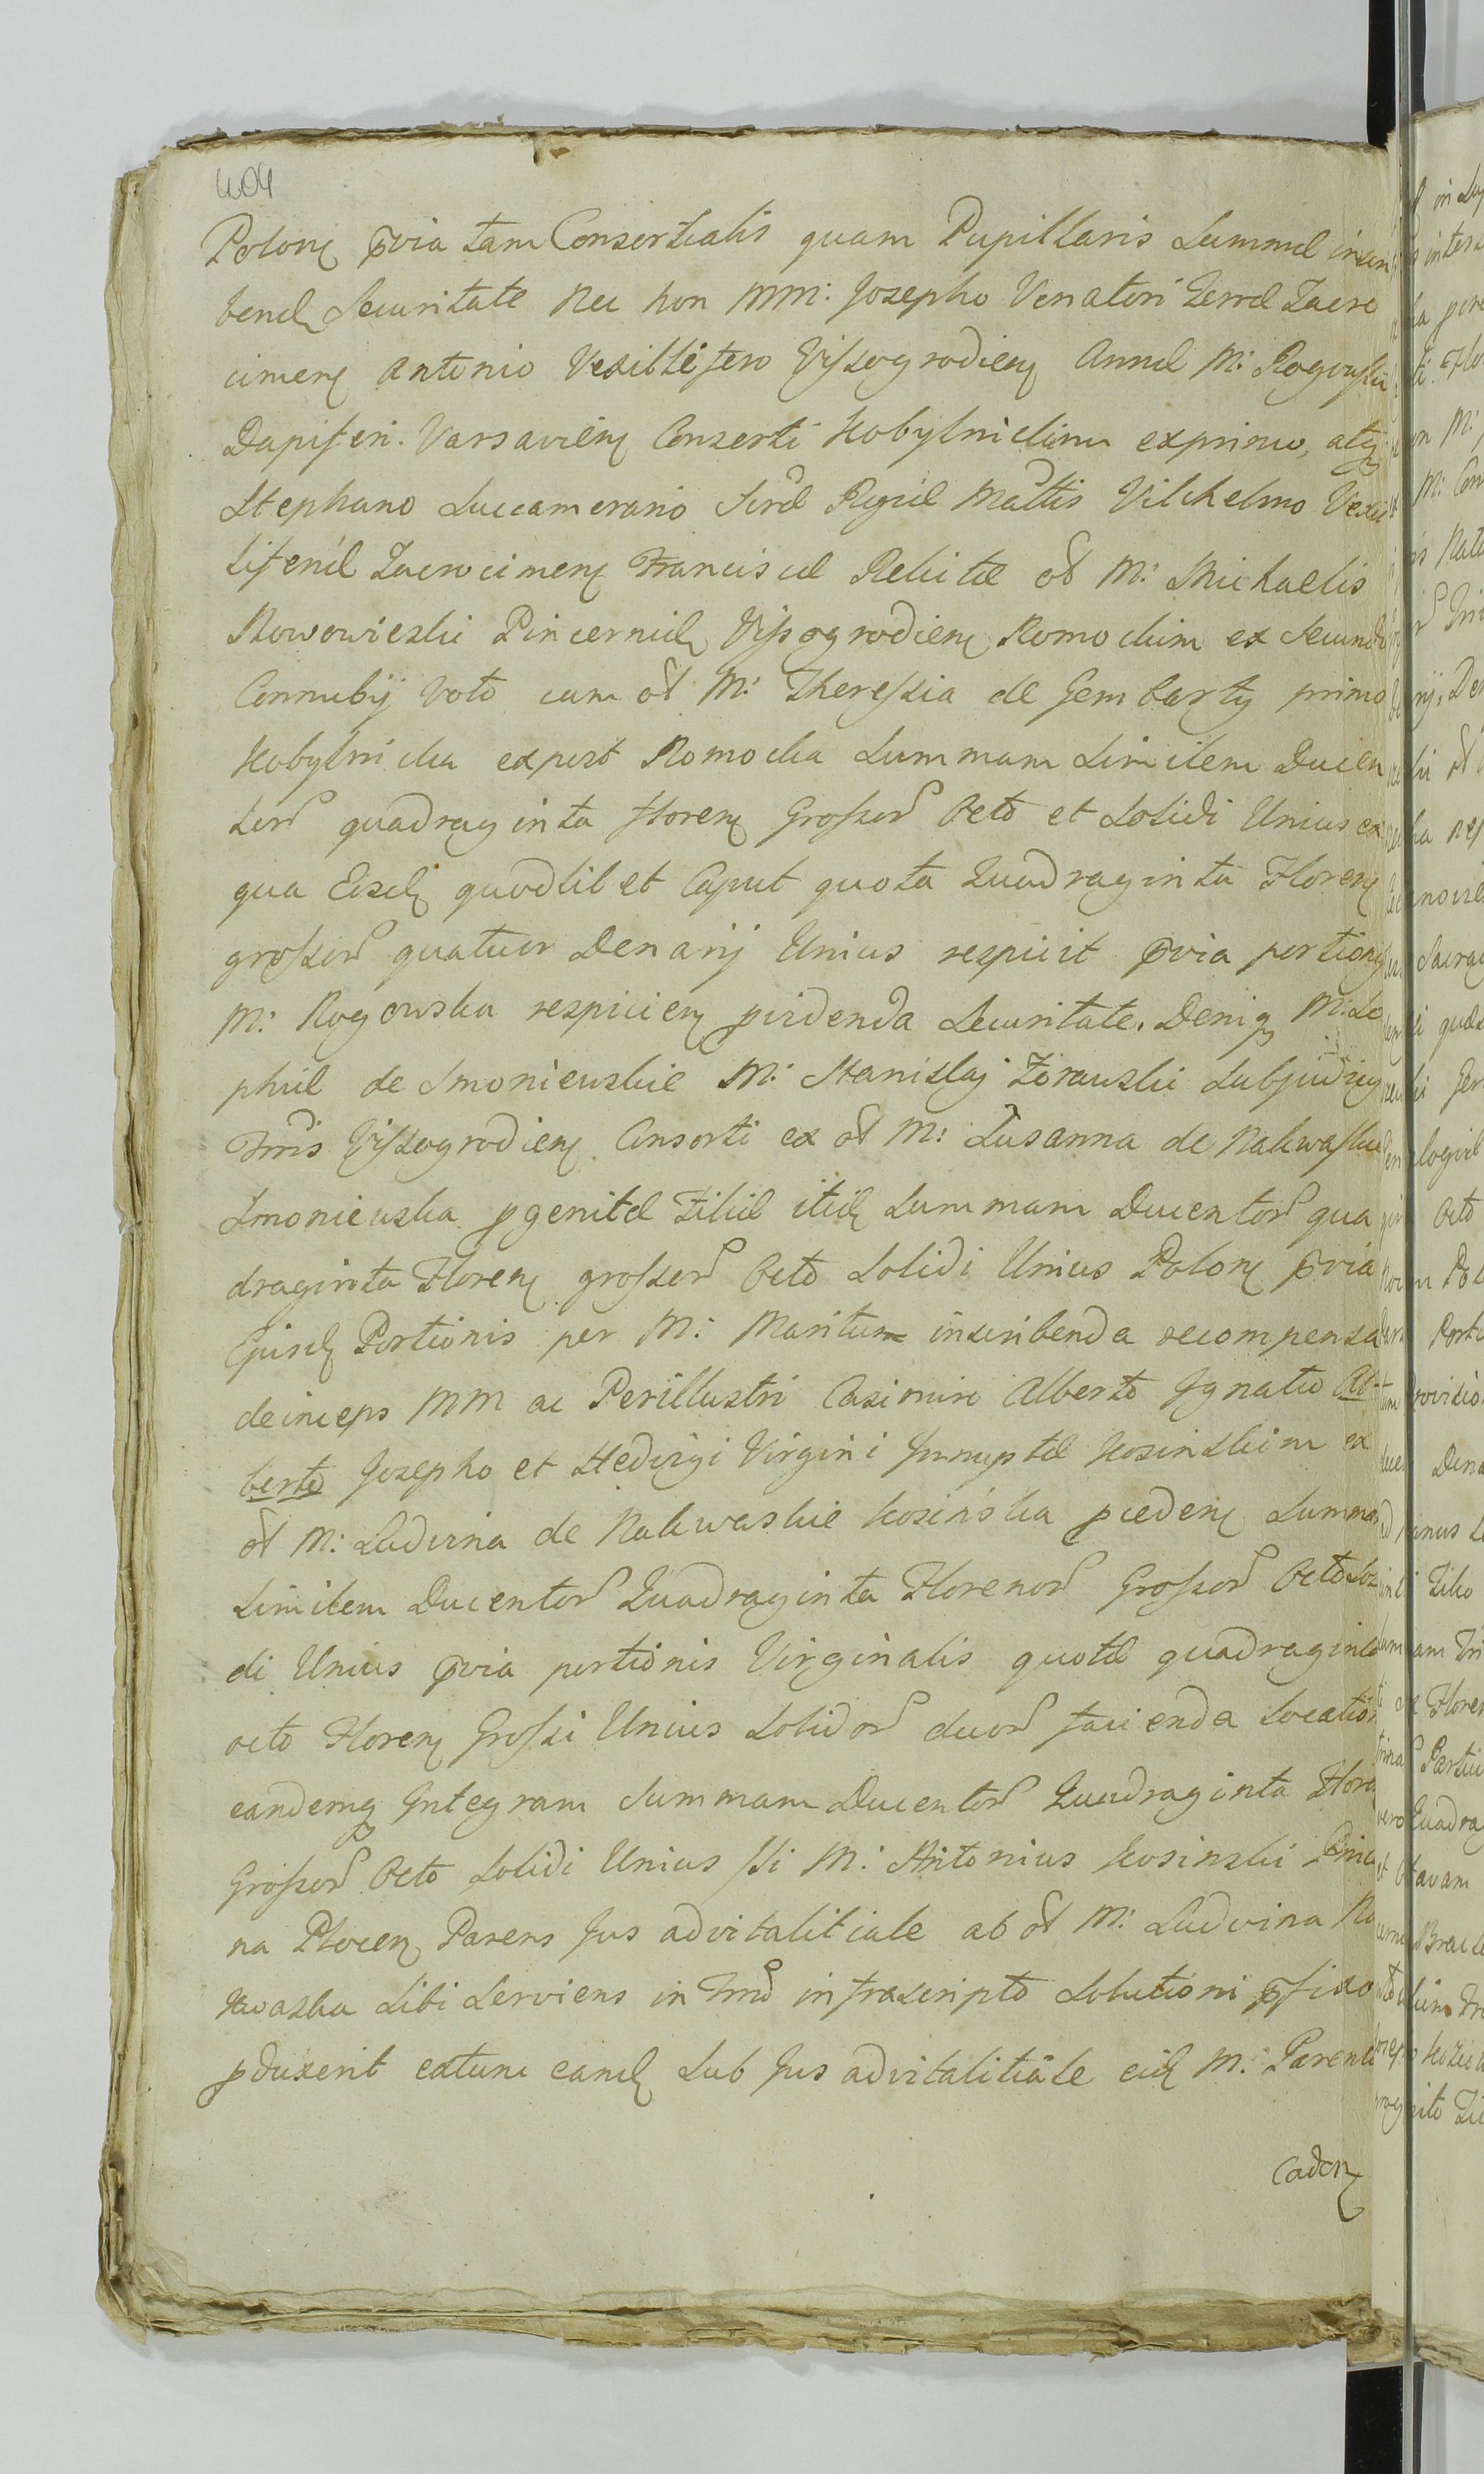 404
Polon pvia tam Consortialis quam Pupillaris Summæ inscri
bend Securitate Nec non MM: Josepho Venatori Terræ Zacro
cimen Antonio Vexillifero Vissogrodien Annæ M: Rogowski
Dapiferi Varsavien Consorti Kobylnickim exprimo, atq
Stephano Succamerario Sacræ Regiæ Mattis Vilhelmo Vexil
liferiæ Zacrocimen Franciscæ Relictæ ol M: Michaelis
Nowowieski Pincernæ Vissogrodien Romockim ex Secundi
Connubij Voto cum ol M: Theressia de Gembarty primo
Kobylnicka expost Romocka Summam Similem Ducen
tor quadraginta floren Grossor Octo et Solidi Unius ex
qua Eisd quodlibet Caput quota Quadraginta Floren
grossor quatuor Denarij Unius respicit pvia portion
M: Rogowska respicien pvidenda Securitate. Deniq M: So
phiæ de Smoniewskie M: Stanislaj Zorawski Subjudicis
Trris Vissogrodien Consorti ex ol M: Susanna de Nakwaskie
Smoniewska pgenitæ Filiæ itid Summam Ducentor qua
draginta Floren grossor Octo Solidi Unius Polon pvia
Ejusd Portionis per M: Maritum inscribenda recompensa
deinceps MM ac Perillustri Casimiro Alberto Ignatio Al
berto Josepho et Hedvigi Virgini Innuptæ Kosinskim ex
ol M: Ludvina de Nakwaskie Kosińska pceden Summam
Similem Ducentor Quadraginta Florenor Grossor Octo Soli
di Unius pvia portionis Virginalis quotæ quadraginta
octo Floren Grossi Unius Solidor duor facienda locatio
eandemq Integram Summam Ducentor Quadraginta Floren
Grossor Octo Solidi Unius Si M: Antonius Kosinski Pincer
na Plocen Parens Jus advitalitiale ab ol M: Ludvina Na
kwaska Sibi Serviens in Trno infrascripto Solutioni pfixo
pduxerit extunc eand Sub Jus advitalitiale eid M: Parenti
Caden